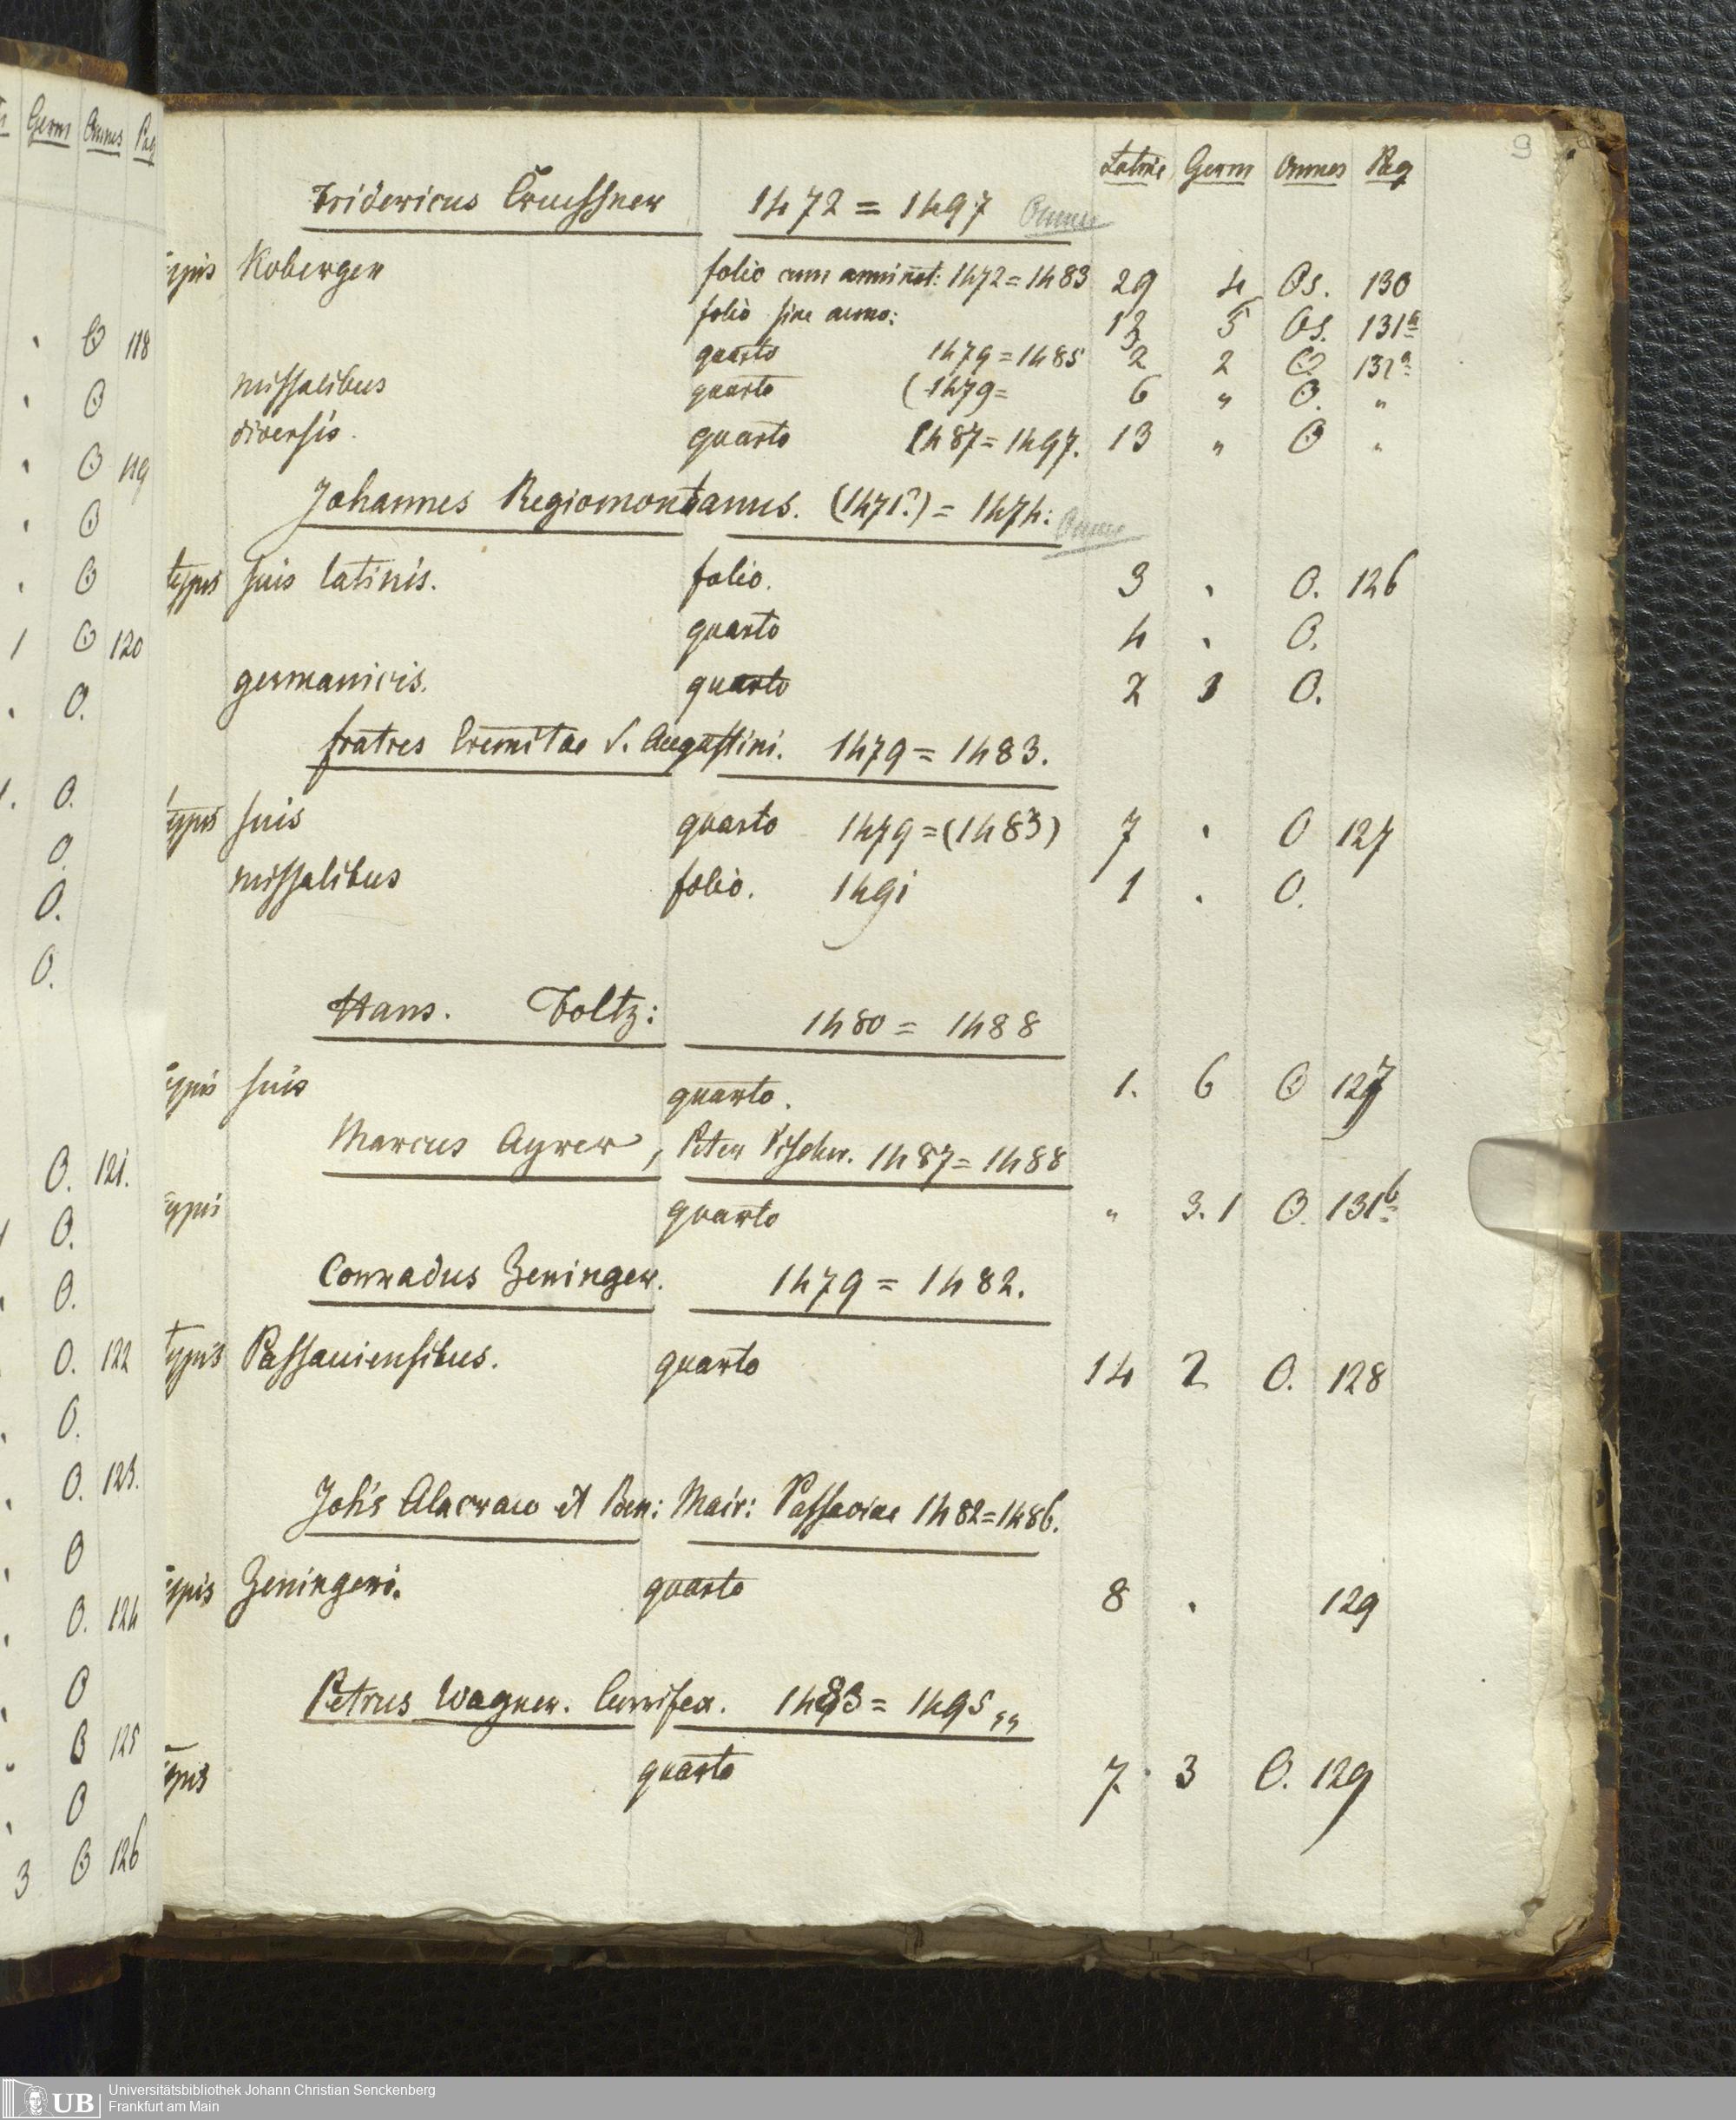 Germ Omnes Pag
O 118
O
O 119
O
O
1 O 120
O.
O.
O.
O.
O.
O. 121.
O.
O.
O. 122
O.
O. 123.
O
O. 124
O
O 125
O
3 O 126
9
Latine Germ Omnes Pag
Fridericus Creussner 1472 = 1497 Omnes
typis Koberger folio cum anni not: 1472 = 1483 29 4 Os. 130
folio sine anno: 12 5 Os. 131a
quarto 1479 = 1485 2 2 O 132a
missalibus quarto (1479= 6 " O. "
diversis. quarto 1487 = 1497. 13 " O "
Johannes Regiomontanus. (1471?) = 1474: Omnes
typis suis latinis. folio. 3 . O. 126
quarto 4 . O.
germanicis. quarto 2 3 O.
fratres Eremitae S. Augustini. 1479 = 1483.
typis suis quarto 1479 = (1483) 7 . O 127
missalibus folio. 1491 1 . O.
Hans. Foltz: 1480 = 1488
typis suis quarto. 1. 6 O 127
Marcus Ayrer, Peter Vischer. 1487 = 1488
typis quarto " 3. 1 O. 131b
Conradus Zeninger. 1479 = 1482.
typis Passauiensibus. quarto 14 2 O. 128
Joh's Alacraw et Ben: Mair: Passaviae 1482 = 1486.
typis Zeningeri. quarto 8 . 129
Petrus Wagner. Currifex. 1483 = 1495
typis quarto 7. 3 O. 129
UB
Universitätsbibliothek Johann Christian Senckenberg
Frankfurt am Main